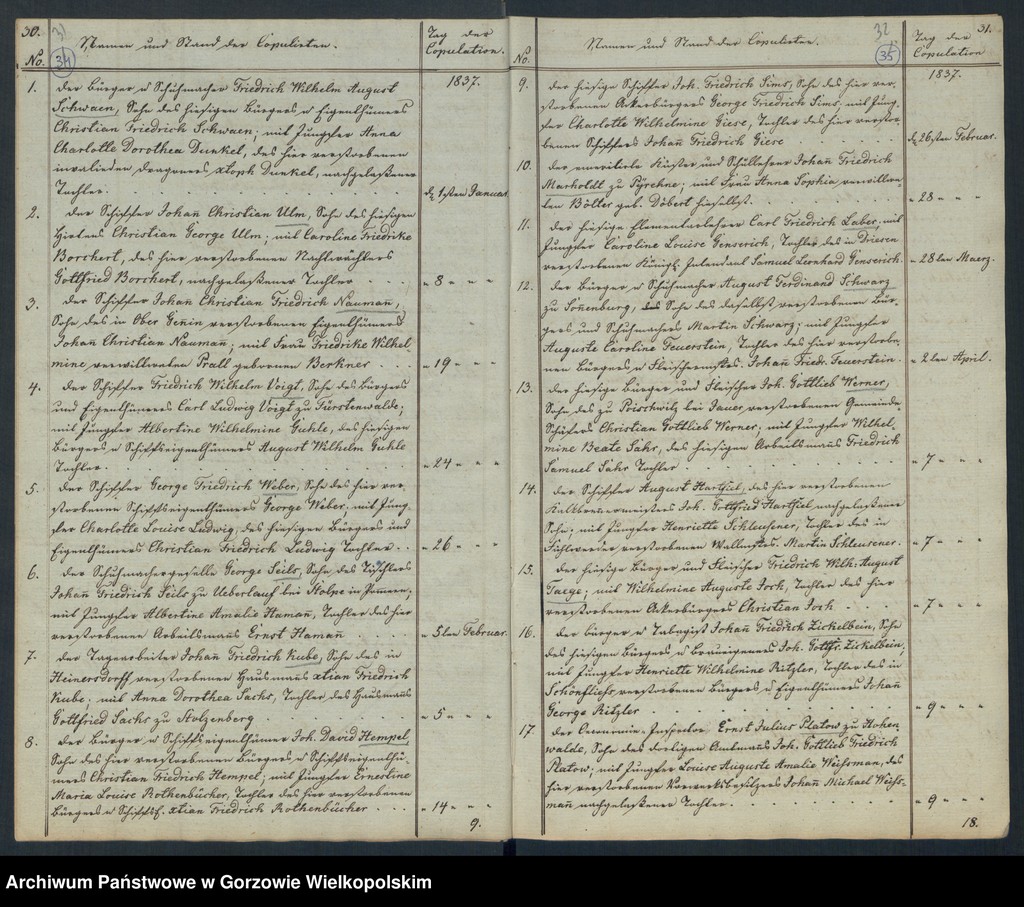 30.
31
34
No.
Namen und Stand der Copulirten.
Tag der
Copulation.
1837.
1.
der Bürger u Schuhmacher Friedrich Wilhelm August
Schwaen, Sohn des hiesigen Bürgers u Eigenthümers
Christian Friedrich Schwaen; mit Jungfer Anna
Charlotte Dorothea Dunkel, des hier verstorbenen
invaliden Dragoners Xtoph Dunkel, nachgelaßener
Tochter.
d 1sten Januar.
2.
der Schiffer Johan̄ Christian Ulm, Sohn des hiesigen
Hirtens Christian George Ulm; mit Caroline Friedrike
Borchert, des hier verstorbenen Nachtwächters
Gottfried Borchert, nachgelaßener Tochter
" 8 " "
3.
der Schiffer Johan̄ Christian Friedrich Nauman̄,
Sohn des in Ober Genin verstorbenen Eigenthümers
Johan̄ Christian Nauman̄; mit Frau Friedrike Wilhel-
mine verwittweten Prall gebornen Berkner
" 19 " "
4.
der Schiffer Friedrich Wilhelm Voigt, Sohn des Bürgers
und Eigenthümers Carl Ludwig Voigt zu Fürstenwalde;
mit Jungfer Albertine Wilhelmine Guhle, des hiesigen
Bürgers u Schiffseigenthümers August Wilhelm Guhle
Tochter.
" 24 " "
5.
der Schiffer George Friedrich Weber, Sohn des hier ver-
storbenen Schiffseigenthümers George Weber, mit Jung-
fer Charlotte Louise Ludwig, des hiesigen Bürgers und
Eigenthümers Christian Friedrich Ludwig Tochter.
" 26 " "
6.
der Schuhmachergeselle George Seils, Sohn des Tischlers
Johan̄ Friedrich Seils zu Ueberlauf bei Stolpe in Pom̄ern;
mit Jungfer Albertine Amalie Haman̄, Tochter des hier
verstorbenen Arbeitsman̄s Ernst Haman̄
" 5ten Februar.
7.
der Tagearbeiter Johan̄ Friedrich Kube, Sohn des in
Heinersdorff verstorbenen Hausman̄s Xtian Friedrich
Kube; mit Anna Dorothea Sachs, Tochter des Hausman̄s
Gottfried Sachs zu Stolzenberg
" 5 " "
8.
der Bürger u Schiffseigenthümer Joh. David Hempel,
Sohn des hier verstorbenen Bürgers u Schiffseigenthü-
mers Christian Friedrich Hempel; mit Jungfer Ernestine
Maria Louise Rothenbücher, Tochter des hier verstorbenen
Bürgers u Schiffsf. Xtian Friedrich Rothenbücher
" 14 " "
9.
32
31.
35
No.
Namen und Stand der Copulirten.
Tag der
Copulation
1837.
9.
der hiesige Schiffer Joh. Friedrich Sims, Sohn des hier ver-
storbenen Ackerbürgers George Friedrich Sims, mit Jung-
fer Charlotte Wilhelmine Giese, Tochter des hier verstor-
benen Schiffers Johan̄ Friedrich Giese
d 26sten Februar.
10.
der emeritirte Küster und Schullehrer Johan̄ Friedrich
Marholdt zu Pyrehne; mit Frau Anna Sophia verwittwe-
ten Bötter geb. Döbert hieselbst.
" 28 " "
11.
der hiesige Elementarlehrer Carl Friedrich Laber, mit
Jungfer Caroline Louise Genserich, Tochter des in Driesen
verstorbenen Königl. Intendant Samuel Leonhard Genserich.
" 28ten Maerz.
12.
der Bürger u Schuhmacher August Ferdinand Schwarz
zu Son̄enburg, Sohn des daselbst verstorbenen Bür-
gers und Schuhmachers Martin Schwarz; mit Jungfer
Auguste Caroline Feuerstein, Tochter des hier verstorbe-
nen Bürgers u Fleischermstrs. Johan̄ Friedr. Feuerstein.
" 2ten April.
13.
der hiesige Bürger und Fleischer Joh. Gottlieb Werner,
Sohn des zu Poischwitz bei Jauer verstorbenen Gemeinde-
Schäfers Christian Gottlieb Werner; mit Jungfer Wilhel-
mine Beate Sahr, des hiesigen Arbeitsman̄s Friedrich
Samuel Sahr Tochter
" 7 " "
14.
der Schiffer August Hartfiel, des hier verstorbenen
Kalkbrennermeisters Joh. Gottfried Hartfiel nachgelaßener
Sohn; mit Jungfer Henriette Schleusener, Tochter des in
Fichtwerder verstorbenen Wallmstrs. Martin Schleusener.
" 7 " "
15.
der hiesige Bürger und Fleischer Friedrich Wilh. August
Taege; mit Wilhelmine Auguste Joch, Tochter des hier
verstorbenen Ackerbürgers Christian Joch
" 7 " "
16.
der Bürger u Tabagist Johan̄ Friedrich Zickelbein, Sohn
des hiesigen Bürgers u Braueigeners Joh. Gottfr. Zickelbein,
mit Jungfer Henriette Wilhelmine Ritzler, Tochter des in
Schönfliess verstorbenen Bürgers u Eigenthümers Johan̄
George Ritzler
" 9 " "
17.
der Oeconomie-Inspector Ernst Julius Platow zu Hohen-
walde, Sohn des dortigen Amtmans Joh. Gottlieb Friedrich
Platow; mit Jungfer Louise Auguste Amalie Weihsman, des
hier verstorbenen Vorwerksbesitzers Johan̄ Michael Weihs-
man̄ nachgelaßener Tochter.
" 9 " "
18.
Archiwum Państwowe w Gorzowie Wielkopolskim